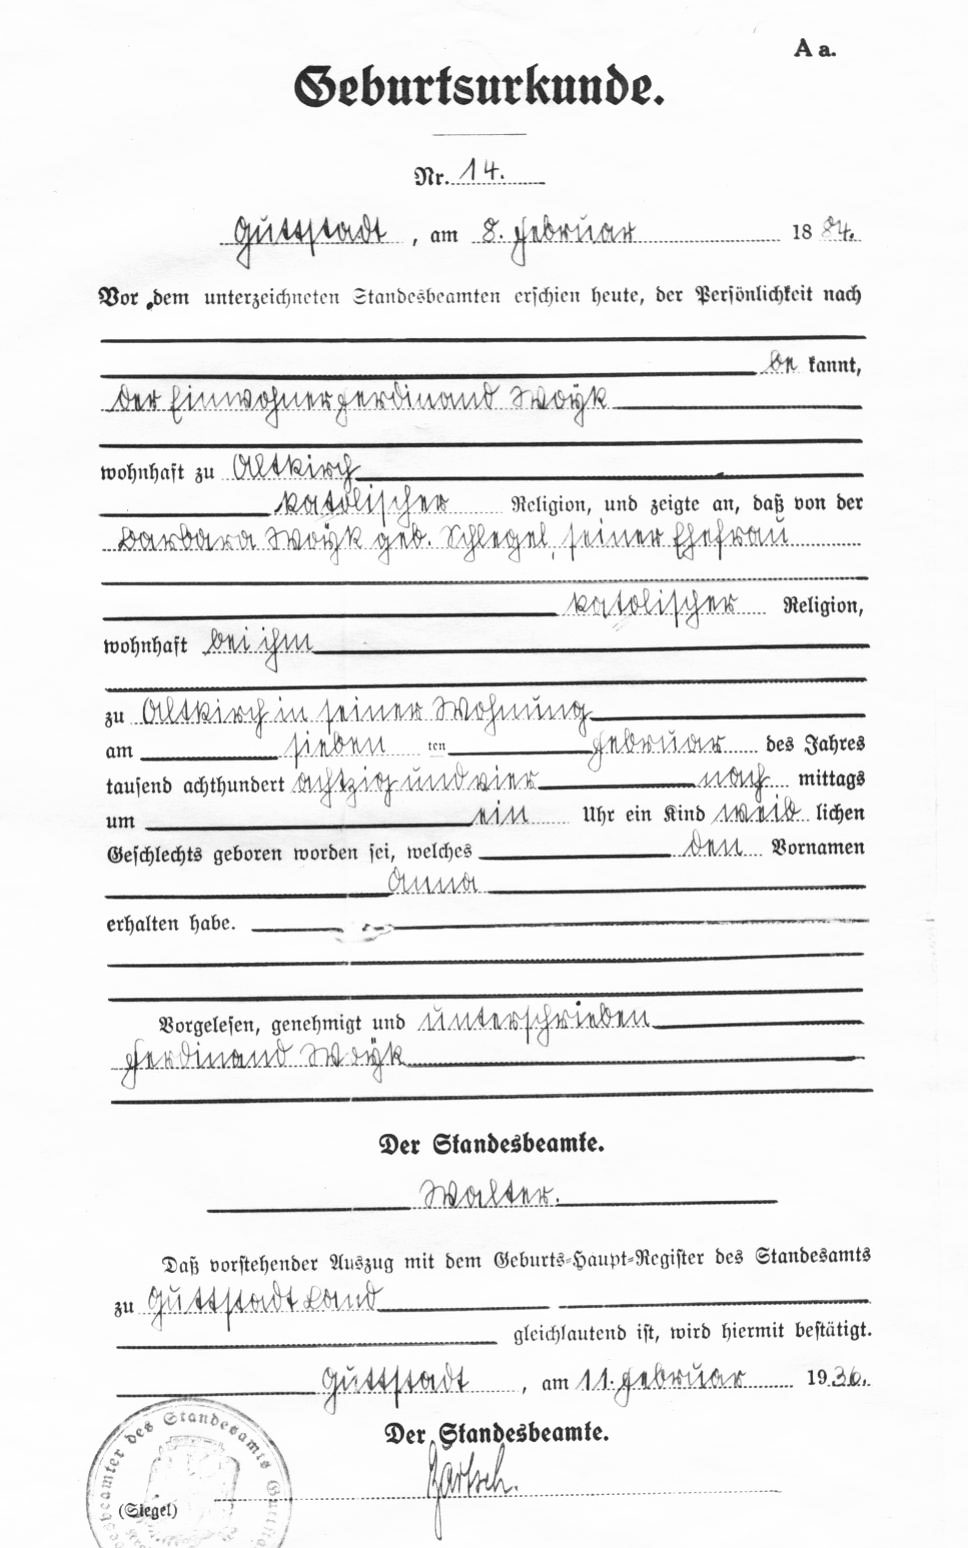 A a.
Geburtsurkunde.
Nr. 14.
Guttstadt, am 8. Februar 1884.
Vor dem unterzeichneten Standesbeamten erschien heute, der Persönlichkeit nach
be kannt,
der Einwohner Ferdinand Woÿk
wohnhaft zu Altkirch
katolischer Religion, und zeigte an, daß von der
Barbara Woÿk geb. Schlegel, seiner Ehefrau
katolischer Religion,
wohnhaft bei ihm
zu Altkirch in seiner Wohnung
am sieben ten Februar des Jahres
tausend achthundert achtzig und vier nach mittags
um ein Uhr ein Kind weib lichen
Geschlechts geboren worden sei, welches den Vornamen
Anna
erhalten habe.
Vorgelesen, genehmigt und unterschrieben
Ferdinand Woÿk
Der Standesbeamte.
Walter.
Daß vorstehender Auszug mit dem Geburts-Haupt-Register des Standesamts
zu Guttstadt Land
gleichlautend ist, wird hiermit bestätigt.
Guttstadt, am 11. Februar 1936.
Der Standesbeamte.
(Siegel)
des Standesamts